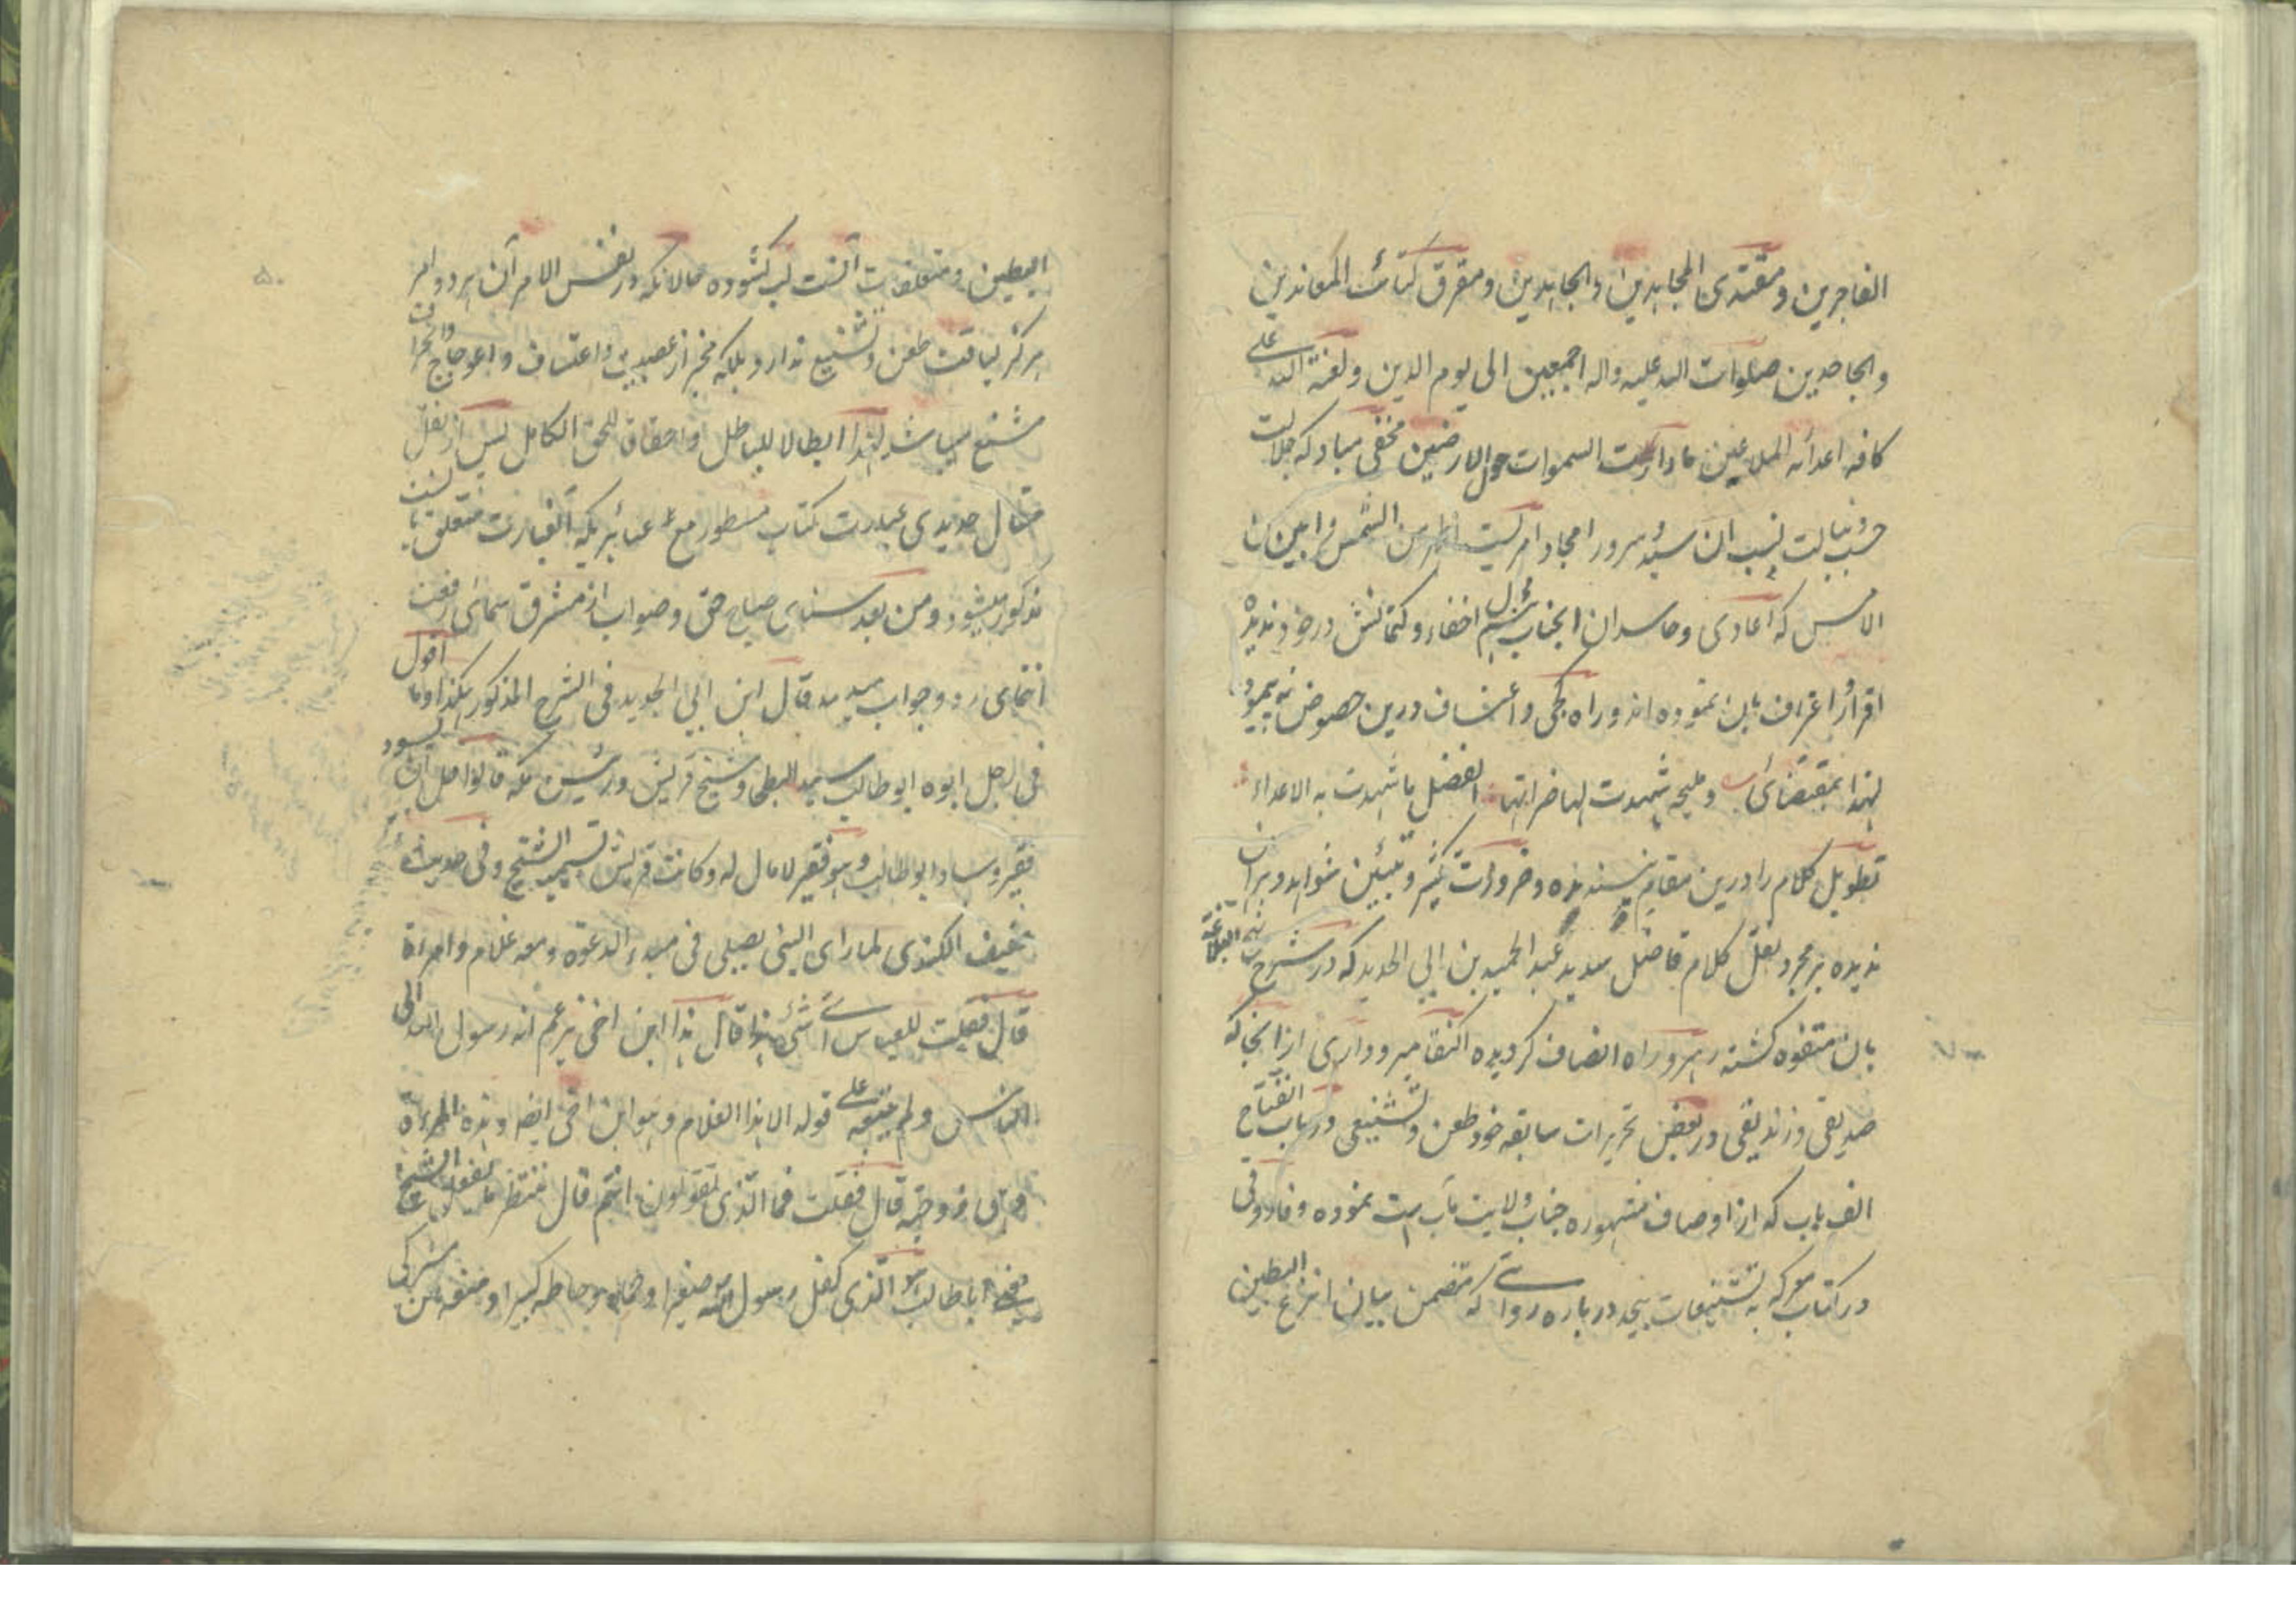 الفاجرین و مقتدی المجاهدین و الجاهدین و مفرق کتائب المعاندین
و الجاحدین صلوات الله علیه و اله اجمعین الی یوم الدین و لعنة الله علی
کافه اعدائه الملاعین ما دارت السموات حول الارضین مخفی مباد که جلالت
حسب و نبالت نسب ان سید و سرور امجاد امریست اظهر من الشمس و ابین من
الامس که اعادی و حاسدان انجناب بهم اخفاء و کتمانش در خود ندیده
اقرار و اعتراف بان نموده اند و راه کجی و اعتساف درین خصوص نه پیموده
لهذا بمقتضای و ملیحة شهدت لها ضراتها الفضل ما شهدت به الاعداء
تطویل کلام را درین مقام نپسندیده و ضرورت و تبیین شواهد و براهین
ندیده بر مجرد نقل کلام فاضل سدید عبد الحمید بن ابی الحدید که در شرح نهج البلاغة
بان متفوه گشته رهرو راه انصاف گردیده اکتفا میرود اری از انجا که
صدیقی و زندیقی در بعض تحریرات سابقه خود طعن و تشنیعی در باب انفتاح
الف باب که از اوصاف مشهوره جناب ولایت مآب است نموده و فاروقی
در کتاب معرکه به تشنیعات بیحد درباره روایتی که متضمن بیان انزع البطین
البطین و متعلقات آنست لب گشوده حالانکه در نفس الامر آن هر دو امر
هرگز لیاقت طعن و تشنیع ندارد بلکه مخبر از عصبیت و اعتساف و اعوجاج و انحراف
شنع میباشد لهذا ابطالا للباطل و احقاقا للحق الکامل پس از نقل
مقال حدیدی عبارت کتاب مسطور مع عبائریکه آنعبارت متعلق بآنست
مذکور میشود و من بعد سنای صباح حق و صواب از مشرق سمای رفعت
انتمای رد و جواب میدمد قال ابن ابی الحدید فی الشرح المذکور هکذا و ما اقول
فی رجل ابوه ابو طالب سید البطحا و شیخ قریش و رئیس مکه قالوا قل ان یسود
فقیر و ساد ابو طالب و هو فقیر لا مال له و کانت قریش تسمیه الشیخ و فی حدیث
عفیف الکندی لما رای النبی یصلی فی مبدء الدعوة و معه غلام و امراة
قال فقلت للعباس ای شیء هذا قال هذا ابن اخی یزعم انه رسول الله الی
الناس و لم یتبعه علی قوله الا هذا الغلام و هو ابن اخی ایضا و هذه المراة
و هی زوجته قال فقلت فما الذی تقولون انتم قال ننتظر ما یفعل الشیخ
یعنی ابا طالب و هو الذی کفل رسول الله صغیرا و حماه و حاطه کبیرا و منعه من مشرکی